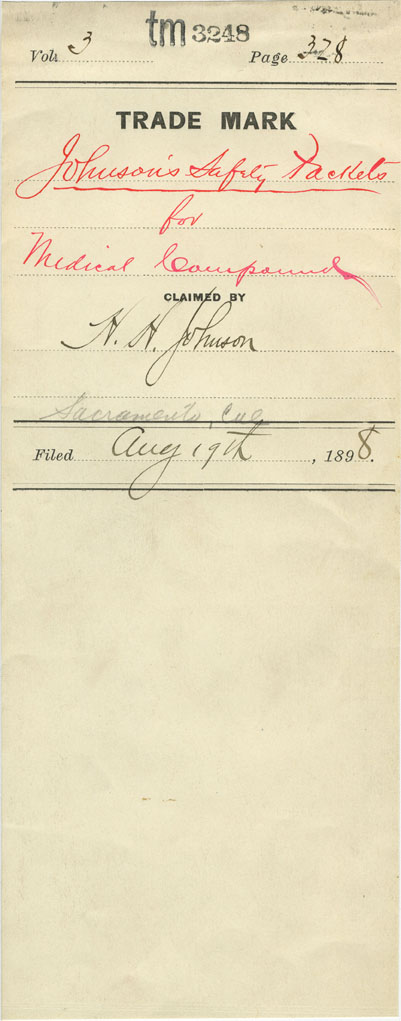 tm 3248
Vol. 3 Page 328
TRADE MARK
Johnson's Safety Packets
for
Medical Compound
CLAIMED BY
H. H. Johnson
Sacramento, Cal
Filed Aug 19th, 1898.